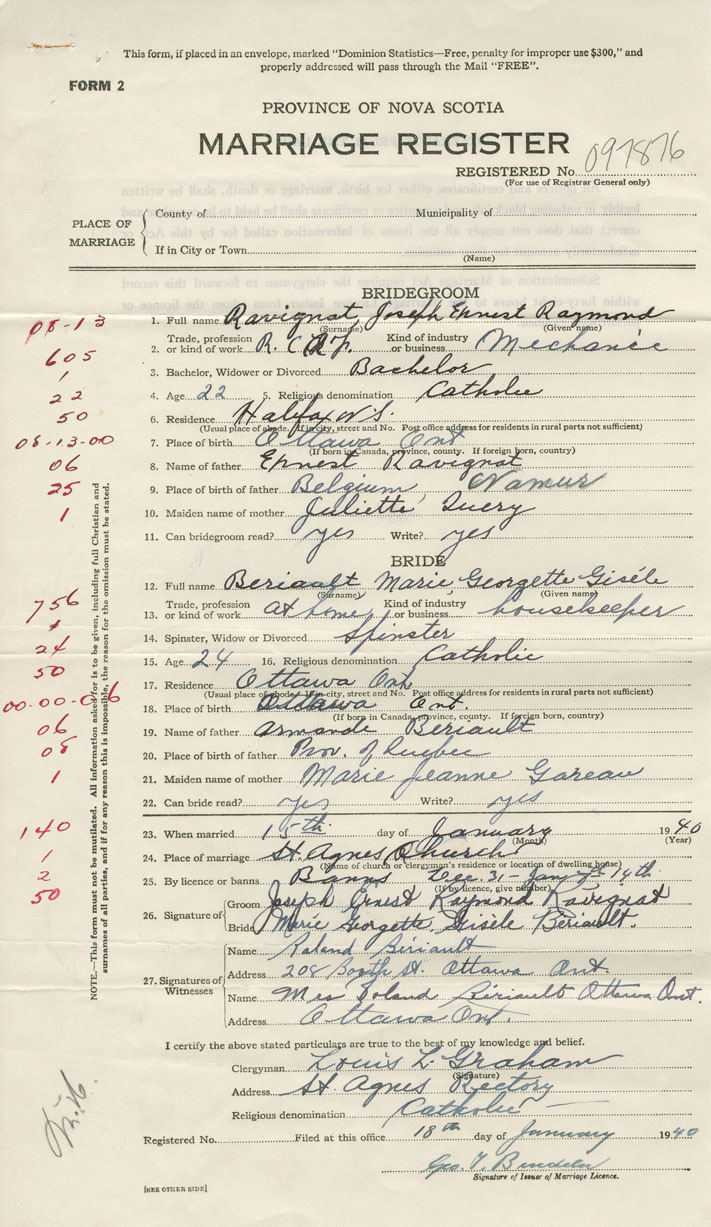 This form, if placed in an envelope, marked "Dominion Statistics—Free, penalty for improper use $300," and
properly addressed will pass through the Mail "FREE".
FORM 2
PROVINCE OF NOVA SCOTIA
MARRIAGE REGISTER
REGISTERED No. 097876
(For use of Registrar General only)
PLACE OF MARRIAGE
County of Municipality of
If in City or Town
(Name)
BRIDEGROOM
08-13
1. Full name Ravignat, Joseph Ernest Raymond
(Surname) (Given name)
605
2. Trade, profession or kind of work R.C.A.F. Kind of industry or business Mechanic
1
3. Bachelor, Widower or Divorced Bachelor
22
4. Age 22 5. Religious denomination Catholic
50
6. Residence Halifax N.S.
(Usual place of abode. If in city, street and No. Post office address for residents in rural parts not sufficient)
08-13-00
7. Place of birth Ottawa Ont
(If born in Canada, province, county. If foreign born, country)
06
8. Name of father Ernest Ravignat
25
9. Place of birth of father Belgium, Namur
1
10. Maiden name of mother Juliette Query
11. Can bridegroom read? yes Write? yes
BRIDE
12. Full name Beriault, Marie Georgette Gisèle
(Surname) (Given name)
756
13. Trade, profession or kind of work at home, Kind of industry or business housekeeper
1
14. Spinster, Widow or Divorced Spinster
24
15. Age 24 16. Religious denomination Catholic
50
17. Residence Ottawa Ont
(Usual place of abode. If in city, street and No. Post office address for residents in rural parts not sufficient)
00-00-06
18. Place of birth Ottawa Ont.
(If born in Canada, province, county. If foreign born, country)
06
19. Name of father Armande Beriault
08
20. Place of birth of father Prov. of Quebec
1
21. Maiden name of mother Marie Jeanne Gareau
22. Can bride read? yes Write? yes
140
23. When married 15th day of January 1940
(Month) (Year)
1
24. Place of marriage St. Agnes Church
(Name of church or clergyman's residence or location of dwelling house)
2
25. By licence or banns Banns Dec. 31 - Jan 7th 14th
(If by licence, give number)
50
26. Signature of
Groom Joseph Ernest Raymond Ravignat
Bride Marie Georgette Gisèle Bériault.
27. Signatures of Witnesses
Name Roland Bériault
Address 208 Booth St. Ottawa Ont.
Name Mrs Roland Bériault Ottawa Ont.
Address Ottawa Ont.
I certify the above stated particulars are true to the best of my knowledge and belief.
Clergyman Louis L. Graham
(Signature)
Address St Agnes Rectory
Religious denomination Catholic
Registered No. Filed at this office 18th day of January 1940
Geo. T.
Signature of Issuer of Marriage Licence.
[SEE OTHER SIDE]
NOTE.—This form must not be mutilated. All information asked for is to be given, including full Christian and
surnames of all parties, and if for any reason this is impossible, the reason for the omission must be stated.